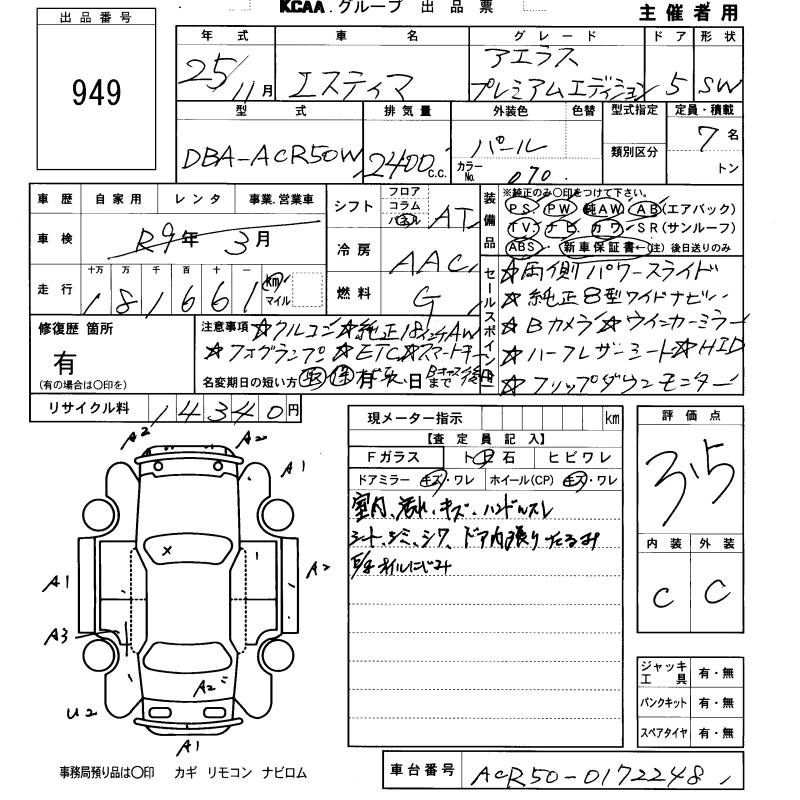 KCAA.グループ 出品票
主催者用
出品番号
949
年式 車名 グレード ドア 形状
25/11月 エスティマ アエラス プレミアムエディション 5 SW
型式 排気量 外装色 色替 型式指定 定員・積載
DBA-ACR50W 2400c.c. パール 7名
カラーNo. 070 類別区分 トン
車歴 自家用 レンタ 事業.営業車
シフト フロア コラム パネル AT
装備品 ※純正のみ○印をつけて下さい。
PS PW 純AW AB(エアバック)
TV ナビ カワ SR(サンルーフ)
ABS 新車保証書←(注)後日送りのみ
車検 R9年 3月
冷房 AAC
走行 十万 万 千 百 十 一 km マイル
181661
燃料 G
セールスポイント
☆両側パワースライド
☆純正8型ワイドナビ
☆Bカメラ☆ウインカーミラー
☆ハーフレザーシート☆HID
☆フリップダウンモニター
修復歴 箇所
有
(有の場合は○印を)
注意事項 ☆クルコン☆純正18インチAW
☆フォグランプ☆ETC☆スマートキー
名変期日の短い方
リサイクル料 14340円
現メーター指示 km
【査定員記入】
Fガラス トビ石 ヒビワレ
ドアミラー キズ・ワレ ホイール(CP) キズ・ワレ
室内、汚れ、キズ、ハンドルスレ
シート、シミ、シワ、ドア内張りたるみ
下廻オイルにじみ
評価点
3.5
内装 外装
C C
A2 A2
A1
A1 A2
A3
A2
U2
A1
ジャッキ工具 有・無
パンクキット 有・無
スペアタイヤ 有・無
事務局預り品は○印 カギ リモコン ナビロム
車台番号 ACR50-0172248